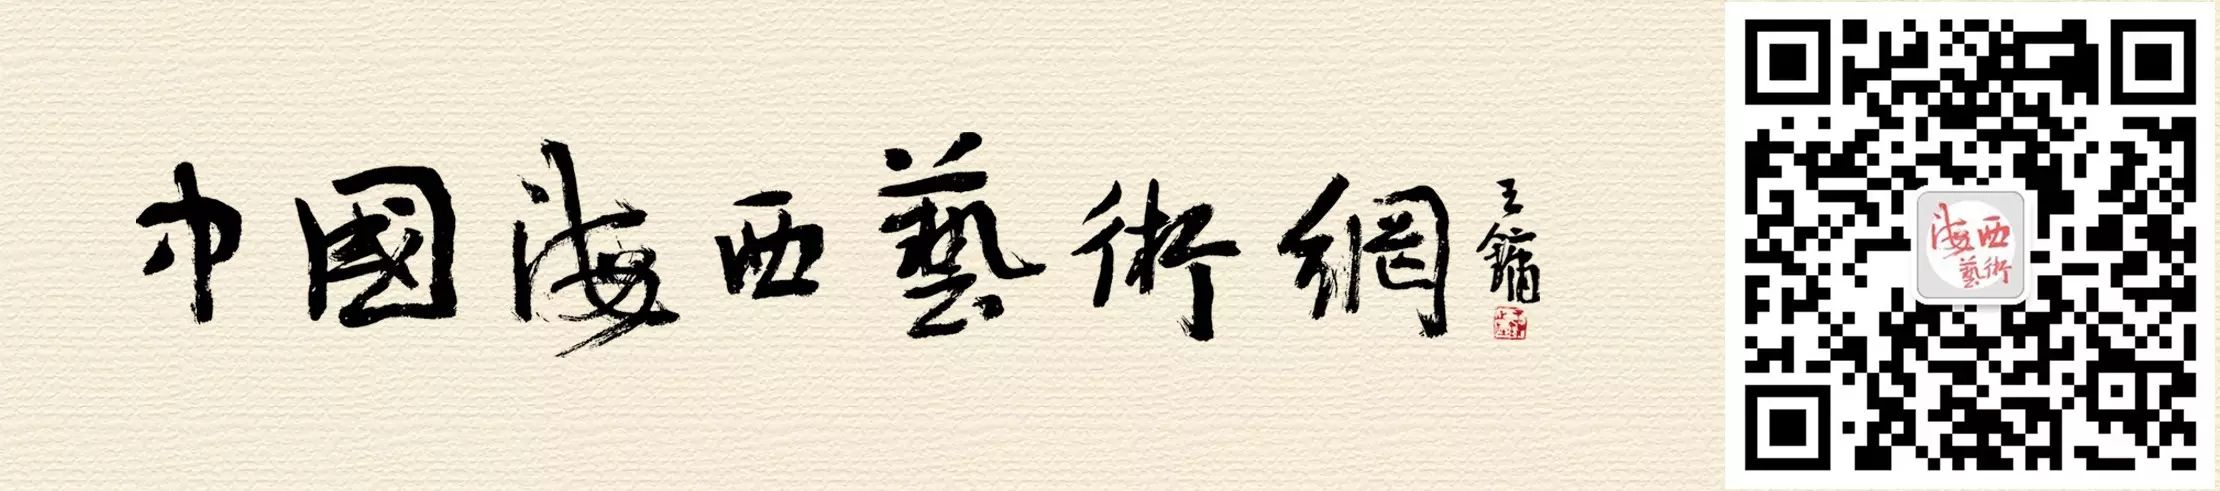 中國海西藝術網
王鏞
海西
藝術